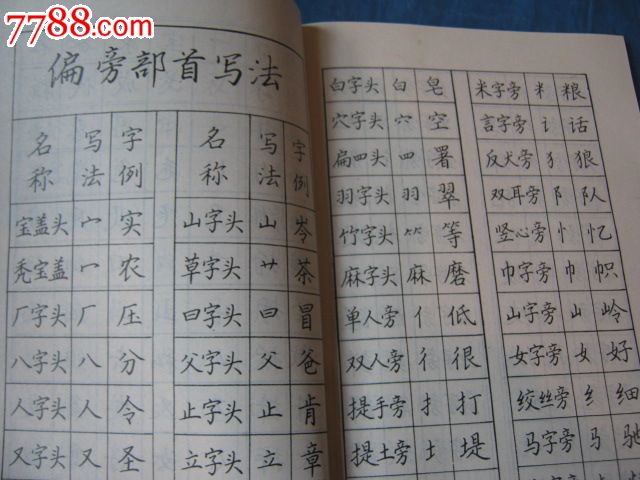 7788.com
偏旁部首写法
名称 写法 字例 名称 写法 字例
宝盖头 宀 实 山字头 山 岑
秃宝盖 冖 农 草字头 艹 茶
厂字头 厂 压 曰字头 曰 冒
八字头 八 分 父字头 父 爸
人字头 人 令 止字头 止 肯
又字头 又 圣 立字头 立 章
白字头 白 皂 米字旁 米 粮
穴字头 穴 空 言字旁 讠 话
扁四头 罒 署 反犬旁 犭 狼
羽字头 羽 翠 双耳旁 阝 队
竹字头 ⺮ 等 竖心旁 忄 忆
麻字头 麻 磨 巾字旁 巾 帜
单人旁 亻 低 山字旁 山 岭
双人旁 彳 很 女字旁 女 好
提手旁 扌 打 绞丝旁 纟 细
提土旁 土 堤 马字旁 马 驰